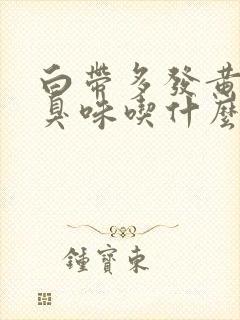 白帶多發黃
臭味喫什麼
鍾寶東